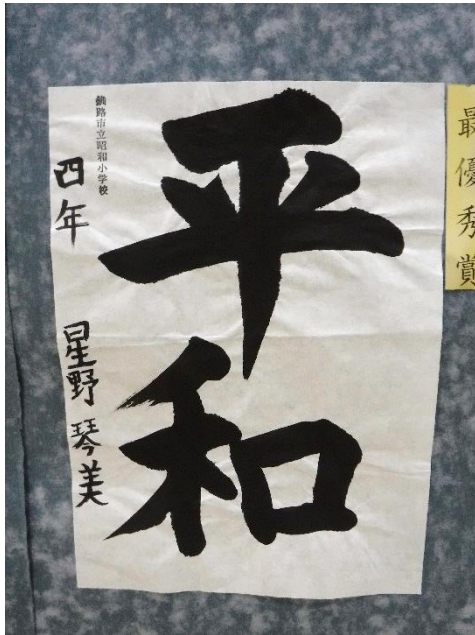 最優秀賞
平和
釧路市立昭和小学校
四年 星野琴美